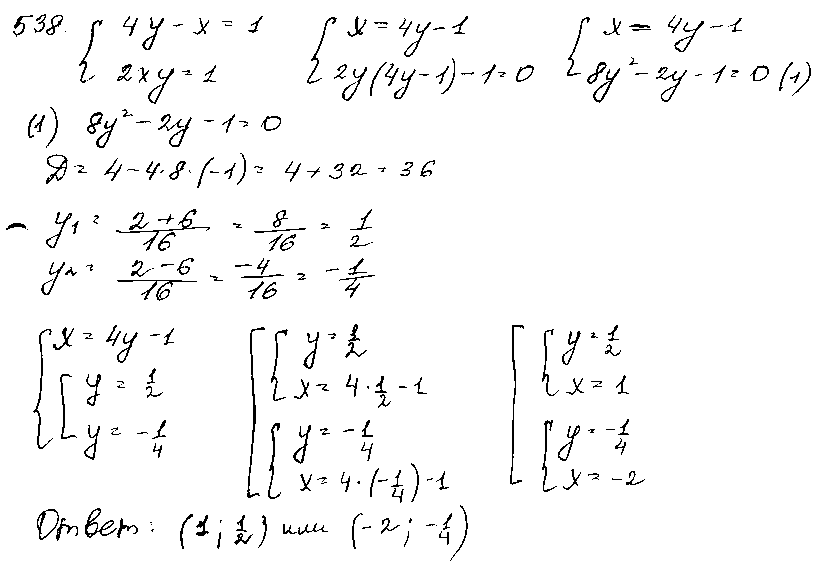 538. { 4y - x = 1 { x = 4y - 1 { x = 4y - 1
{ 2xy = 1 { 2y(4y-1) - 1 = 0 { 8y² - 2y - 1 = 0 (1)
(1) 8y² - 2y - 1 = 0
D = 4 - 4·8·(-1) = 4 + 32 = 36
y₁ = (2+6)/16 = 8/16 = 1/2
y₂ = (2-6)/16 = -4/16 = -1/4
{ x = 4y - 1 [ { y = 1/2 [ { y = 1/2
[ y = 1/2 { x = 4·1/2 - 1 { x = 1
y = -1/4 { y = -1/4 { y = -1/4
x = 4·(-1/4) - 1 x = -2
Ответ: (1; 1/2) или (-2; -1/4)